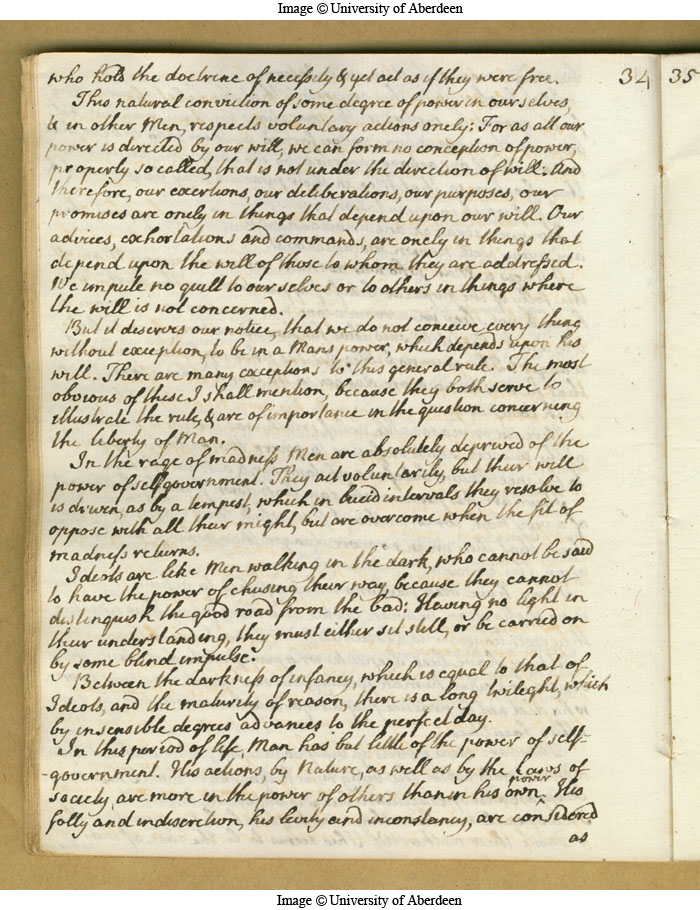 Image © University of Aberdeen
34 35
who hold the doctrine of necessity & yet act as if they were free.
This natural conviction of some degree of power in our selves,
& in other Men, respects voluntary actions onely: For as all our
power is directed by our will, we can form no conception of power,
properly so called, that is not under the direction of will. And
therefore, our exertions, our deliberations, our purposes, our
promises are onely in things that depend upon our will. Our
advices, exhortations and commands, are onely in things that
depend upon the will of those to whom they are addressed.
We impute no guilt to our selves or to others in things where
the will is not concerned.
But it deserves our notice, that we do not conceive every thing
without exception, to be in a Mans power, which depends upon his
will. There are many exceptions to this general rule. The most
obvious of these I shall mention, because they both serve to
illustrate the rule, & are of importance in the question concerning
the liberty of Man.
In the rage of madness Men are absolutely deprived of the
power of self government. They act voluntarily, but their will
is driven, as by a tempest, which in lucid intervals they resolve to
oppose with all their might, but are overcome when the fit of
madness returns.
Ideots are like Men walking in the dark, who cannot be said
to have the power of chusing their way, because they cannot
distinguish the good road from the bad: Having no light in
their understanding, they must either sit still, or be carried on
by some blind impulse.
Between the darkness of infancy, which is equal to that of
Ideots, and the maturity of reason, there is a long twileght, which
by insensible degrees advances to the perfect day.
In this period of life, Man has but little of the power of self-
-government. His actions, by Nature, as well as by the Laws of
society, are more in the power of others than in his own power. His
folly and indiscretion, his levity and inconstancy, are considered
as
Image © University of Aberdeen